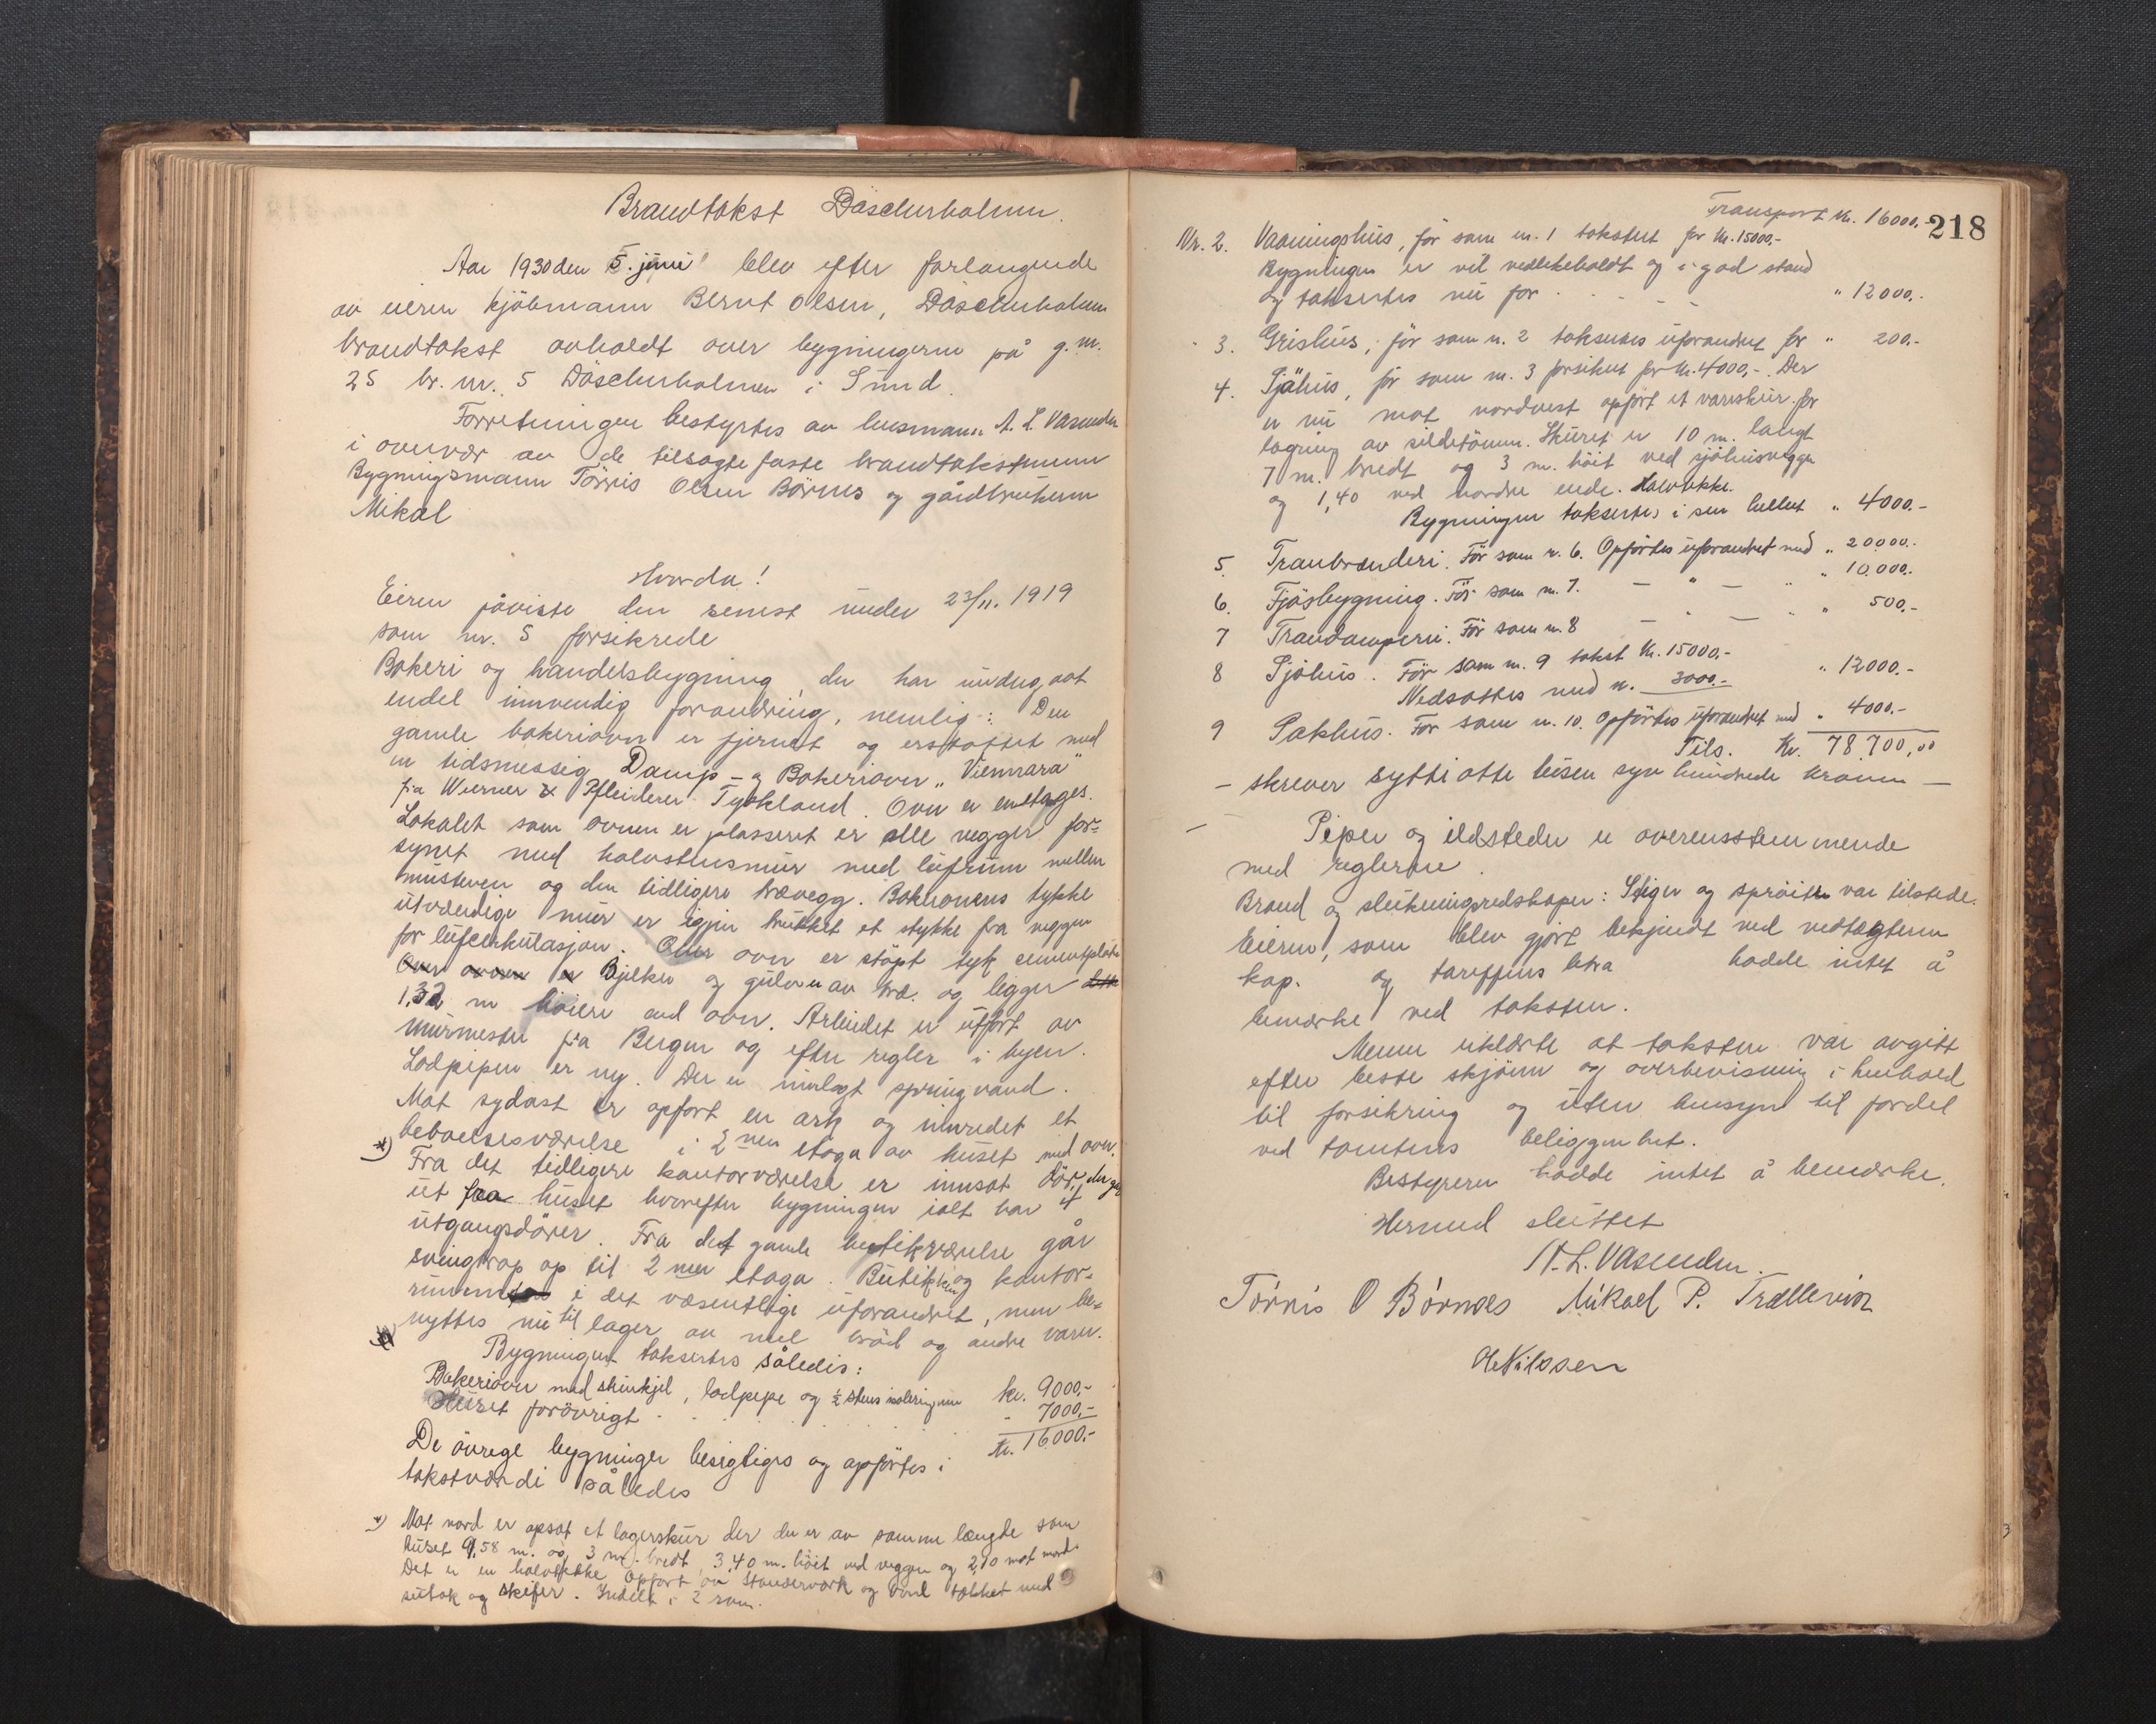 Brandtakst Døscherholmen.
Aar 1930 den 5. juni blev efter forlangende
av eieren kjøbmann Bernt Olsen, Døscherholmen
brandtakst avholdt over bygningerne på g.nr.
25 br. nr. 5 Døscherholmen i Sund.
Forretningen bestyrtes av lensmann N. L. Vasenden
i overvær av de tilsagte faste brandtakstmenn
Bygningsmann Tørris Olsen Børnes og gårdbrukeren
Mikal
Hvorda!
Eieren påviste den senest under 23/11. 1919
som nr. 5 forsikrede
Bakeri og handelsbygning der har undergaat
endel innvendig forandring, nemlig: Den
gamle bakeriovn er fjernet og erstattet med
en tidsmessig Damp- og Bakeriovn "Viennara"
fra Werner & Pfleiderer Tyskland. Ovn er enetages.
Lokalet som ovnen er plasseret er alle vegger for=
synet med halvstensmur med luftrum mellem
mursten og den tidligere trævegg. Bakerovnens tykke
utvendige mur er igjen trukket et stykke fra veggen
for luftcirkulasjon. Over ovn er støpt tyk cementplate
Over ovnen er Bjelker og gulv er av træ. og ligger
1,32 m høiere end ovn. Arbeidet er utført av
murmester fra Bergen og efter regler i byen.
Lodpipen er ny. Der er innlagt springvand.
Mot sydost er opført en ark og innredet et
beboelsesværelse i 2nen etage av huset med ovn.
*) Fra det tidligere kontorværelse er innsat dør, der går
ut fra huset hvorefter bygningen ialt har 4
utgangsdører. Fra det gamle butikværelse går
svingtrap op til 2nen etage. Butikk og kontor=
rummene i det væsentlige uforandret, men be=
nyttes nu til lager av mel brød og andre varer.
Bygningen taksertes således:
Bakeriovn med skinkjel, lodpipe og ½ stens isoleringmur kr. 9000,-
Huset forøvrigt . . . . . . - 7000,-
Kr. 16000,-
De øvrige bygninger besigtiges og opførtes i
takstværdi således
*) Mot nord er opsat et lagerskur der er av samme længde som
huset 9,58 m. og 3 m. bredt, 3,40 m. høit ved veggen og 2,10 mot nord.
Det er en halvtekke opført av Stenderverk og bord tækket med
sutak og skifer. Inddelt i 2 rom.
218
Transport Kr. 16000,-
Nr. 2. Vaaningshus, før som nr. 1 takstert for Kr. 15000,-
Bygningen er vel vedlikeholdt og i god stand
og taksertes nu for . - - - " 12000,-
3. Grishus, før som nr. 2 taksertes uforandret for " 200,-
4. Sjøhus, før som nr. 3 forsikret for kr. 4000,-. Der
er nu mot nordvest opført et vareskur for
lagring av sildetønner. Skuret er 10 m. langt
7 m. bredt og 3 m. høit ved sjøhusveggen
og 1,40 ved nordre ende. Halvtekke.
Bygningen taksertes i sin helhet " 4000,-
5. Tranbrænderi. Før som nr. 6. Opførtes uforandret med " 20000,-
6. Fjøsbygning. Før som nr. 7. - " - " 10.000,-
7 Trandamperi. Før som nr. 8 - - " 500,-
8 Sjøhus. Før som nr. 9 takst Kr. 15000,-
Nedsattes med kr. 3000,- " 12000,-
9 Pakhus. Før som nr. 10. Opførtes uforandret med " 4000,-
Tils. Kr. 78700,00
- skrever sytti otte tusen syv hundrede kroner -
Piper og ildsteder er overensstemmende
med reglerne.
Brand og slukningsredskaper: Stiger og sprøite var tilstede.
Eieren, som blev gjort bekjendt ved vedtægterne
kap. og tariffens litra hadde intet å
bemerke ved taksten.
Menn erklærte at taksten var avgitt
efter beste skjønn og overbevisning i henhold
til forsikring og uten hensyn til fordel
ved tomtens beliggenhet.
Bestyreren hadde intet å bemerke.
Hermed sluttet
N. L. Vasenden.
Tørris O Børnes Mikael P. Trællevik
HNilssen